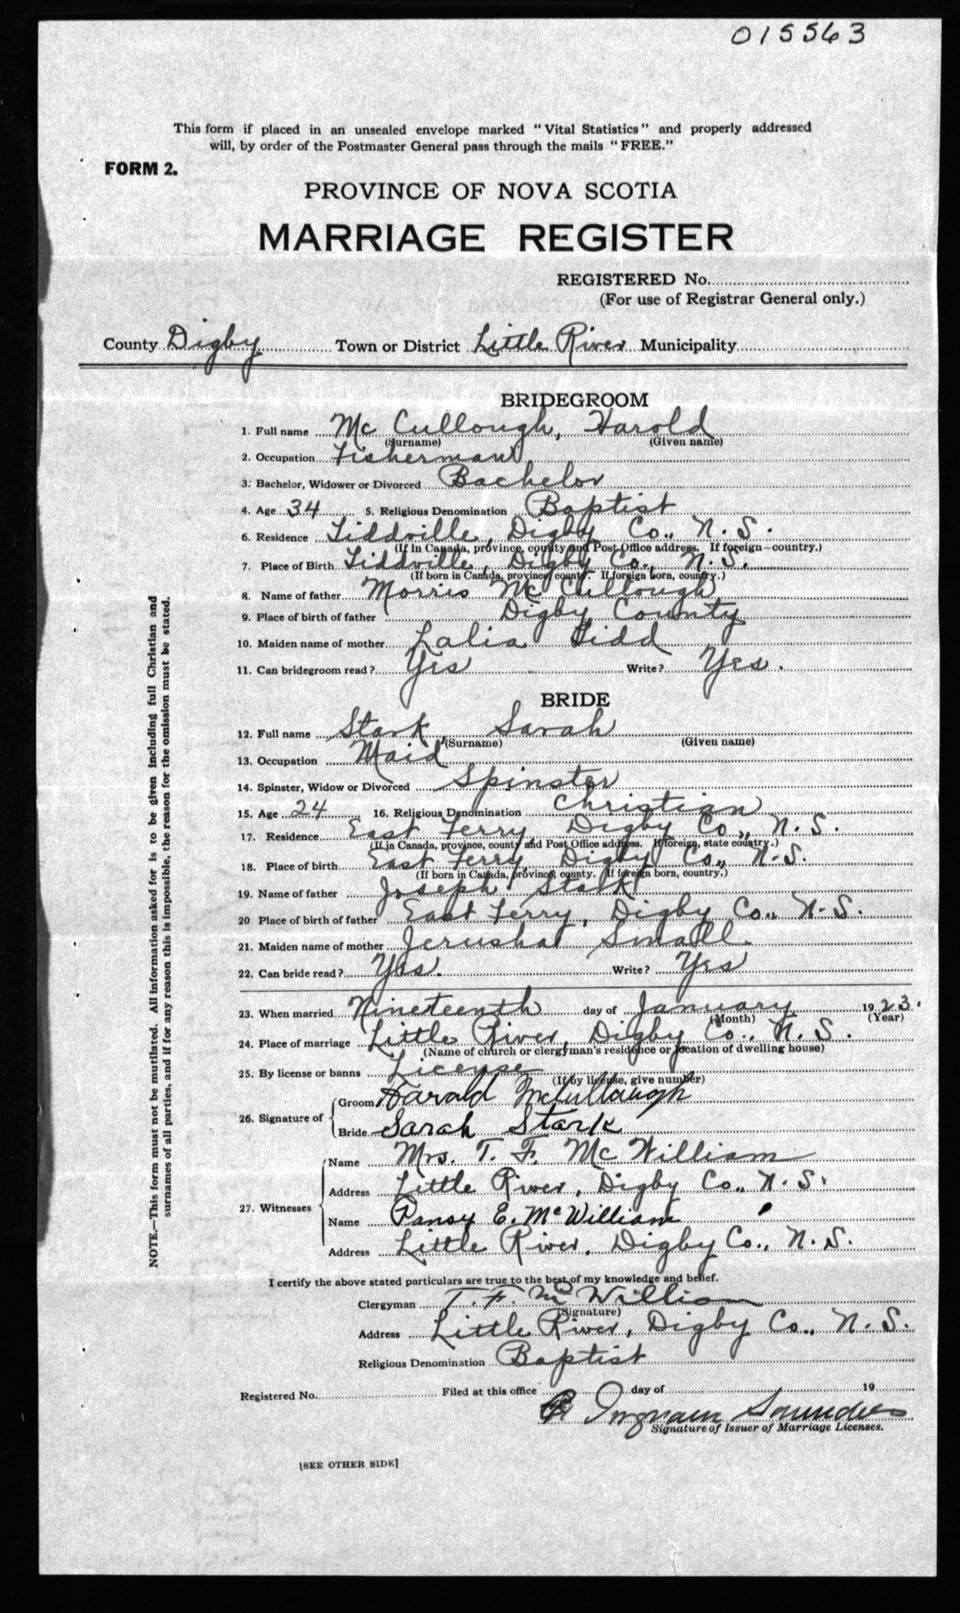 015563
This form if placed in an unsealed envelope marked "Vital Statistics" and properly addressed
will, by order of the Postmaster General pass through the mails "FREE."
FORM 2.
PROVINCE OF NOVA SCOTIA
MARRIAGE REGISTER
REGISTERED No.
(For use of Registrar General only.)
County Digby Town or District Little River Municipality
BRIDEGROOM
1. Full name McCullough, Harold
(Surname) (Given name)
2. Occupation Fisherman
3. Bachelor, Widower or Divorced Bachelor
4. Age 34 5. Religious Denomination Baptist
6. Residence Tiddville, Digby Co., N.S.
(If in Canada, province, county and Post Office address. If foreign—country.)
7. Place of Birth Tiddville, Digby Co., N.S.
(If born in Canada, province county. If foreign born, country.)
8. Name of father Morris McCullough
9. Place of birth of father Digby County
10. Maiden name of mother Lalia Tidd
11. Can bridegroom read? Yes Write? Yes.
BRIDE
12. Full name Stark, Sarah
(Surname) (Given name)
13. Occupation Maid
14. Spinster, Widow or Divorced Spinster
15. Age 24 16. Religious Denomination Christian
17. Residence East Ferry, Digby Co., N.S.
(If in Canada, province, county and Post Office address. If foreign, state country.)
18. Place of birth East Ferry, Digby Co., N.S.
(If born in Canada, province county. If foreign born, country.)
19. Name of father Joseph Stark
20 Place of birth of father East Ferry, Digby Co., N.S.
21. Maiden name of mother Jerusha Small.
22. Can bride read? Yes. Write? Yes
23. When married Nineteenth day of January 1923.
(Month) (Year)
24. Place of marriage Little River, Digby Co., N.S.
(Name of church or clergyman's residence or location of dwelling house)
25. By license or banns License
(If by license, give number)
26. Signature of Groom Harold McCullough
Bride Sarah Stark
27. Witnesses Name Mrs. T. F. McWilliam
Address Little River, Digby Co., N.S.
Name Pansy E. McWilliam
Address Little River, Digby Co., N.S.
I certify the above stated particulars are true to the best of my knowledge and belief.
Clergyman T. F. McWilliam
(Signature)
Address Little River, Digby Co., N.S.
Religious Denomination Baptist
Registered No. Filed at this office day of 19
Ingram Saunders
Signature of Issuer of Marriage Licenses.
[SEE OTHER SIDE]
NOTE.—This form must not be mutilated. All information asked for is to be given including full Christian and
surnames of all parties, and if for any reason this is impossible, the reason for the omission must be stated.